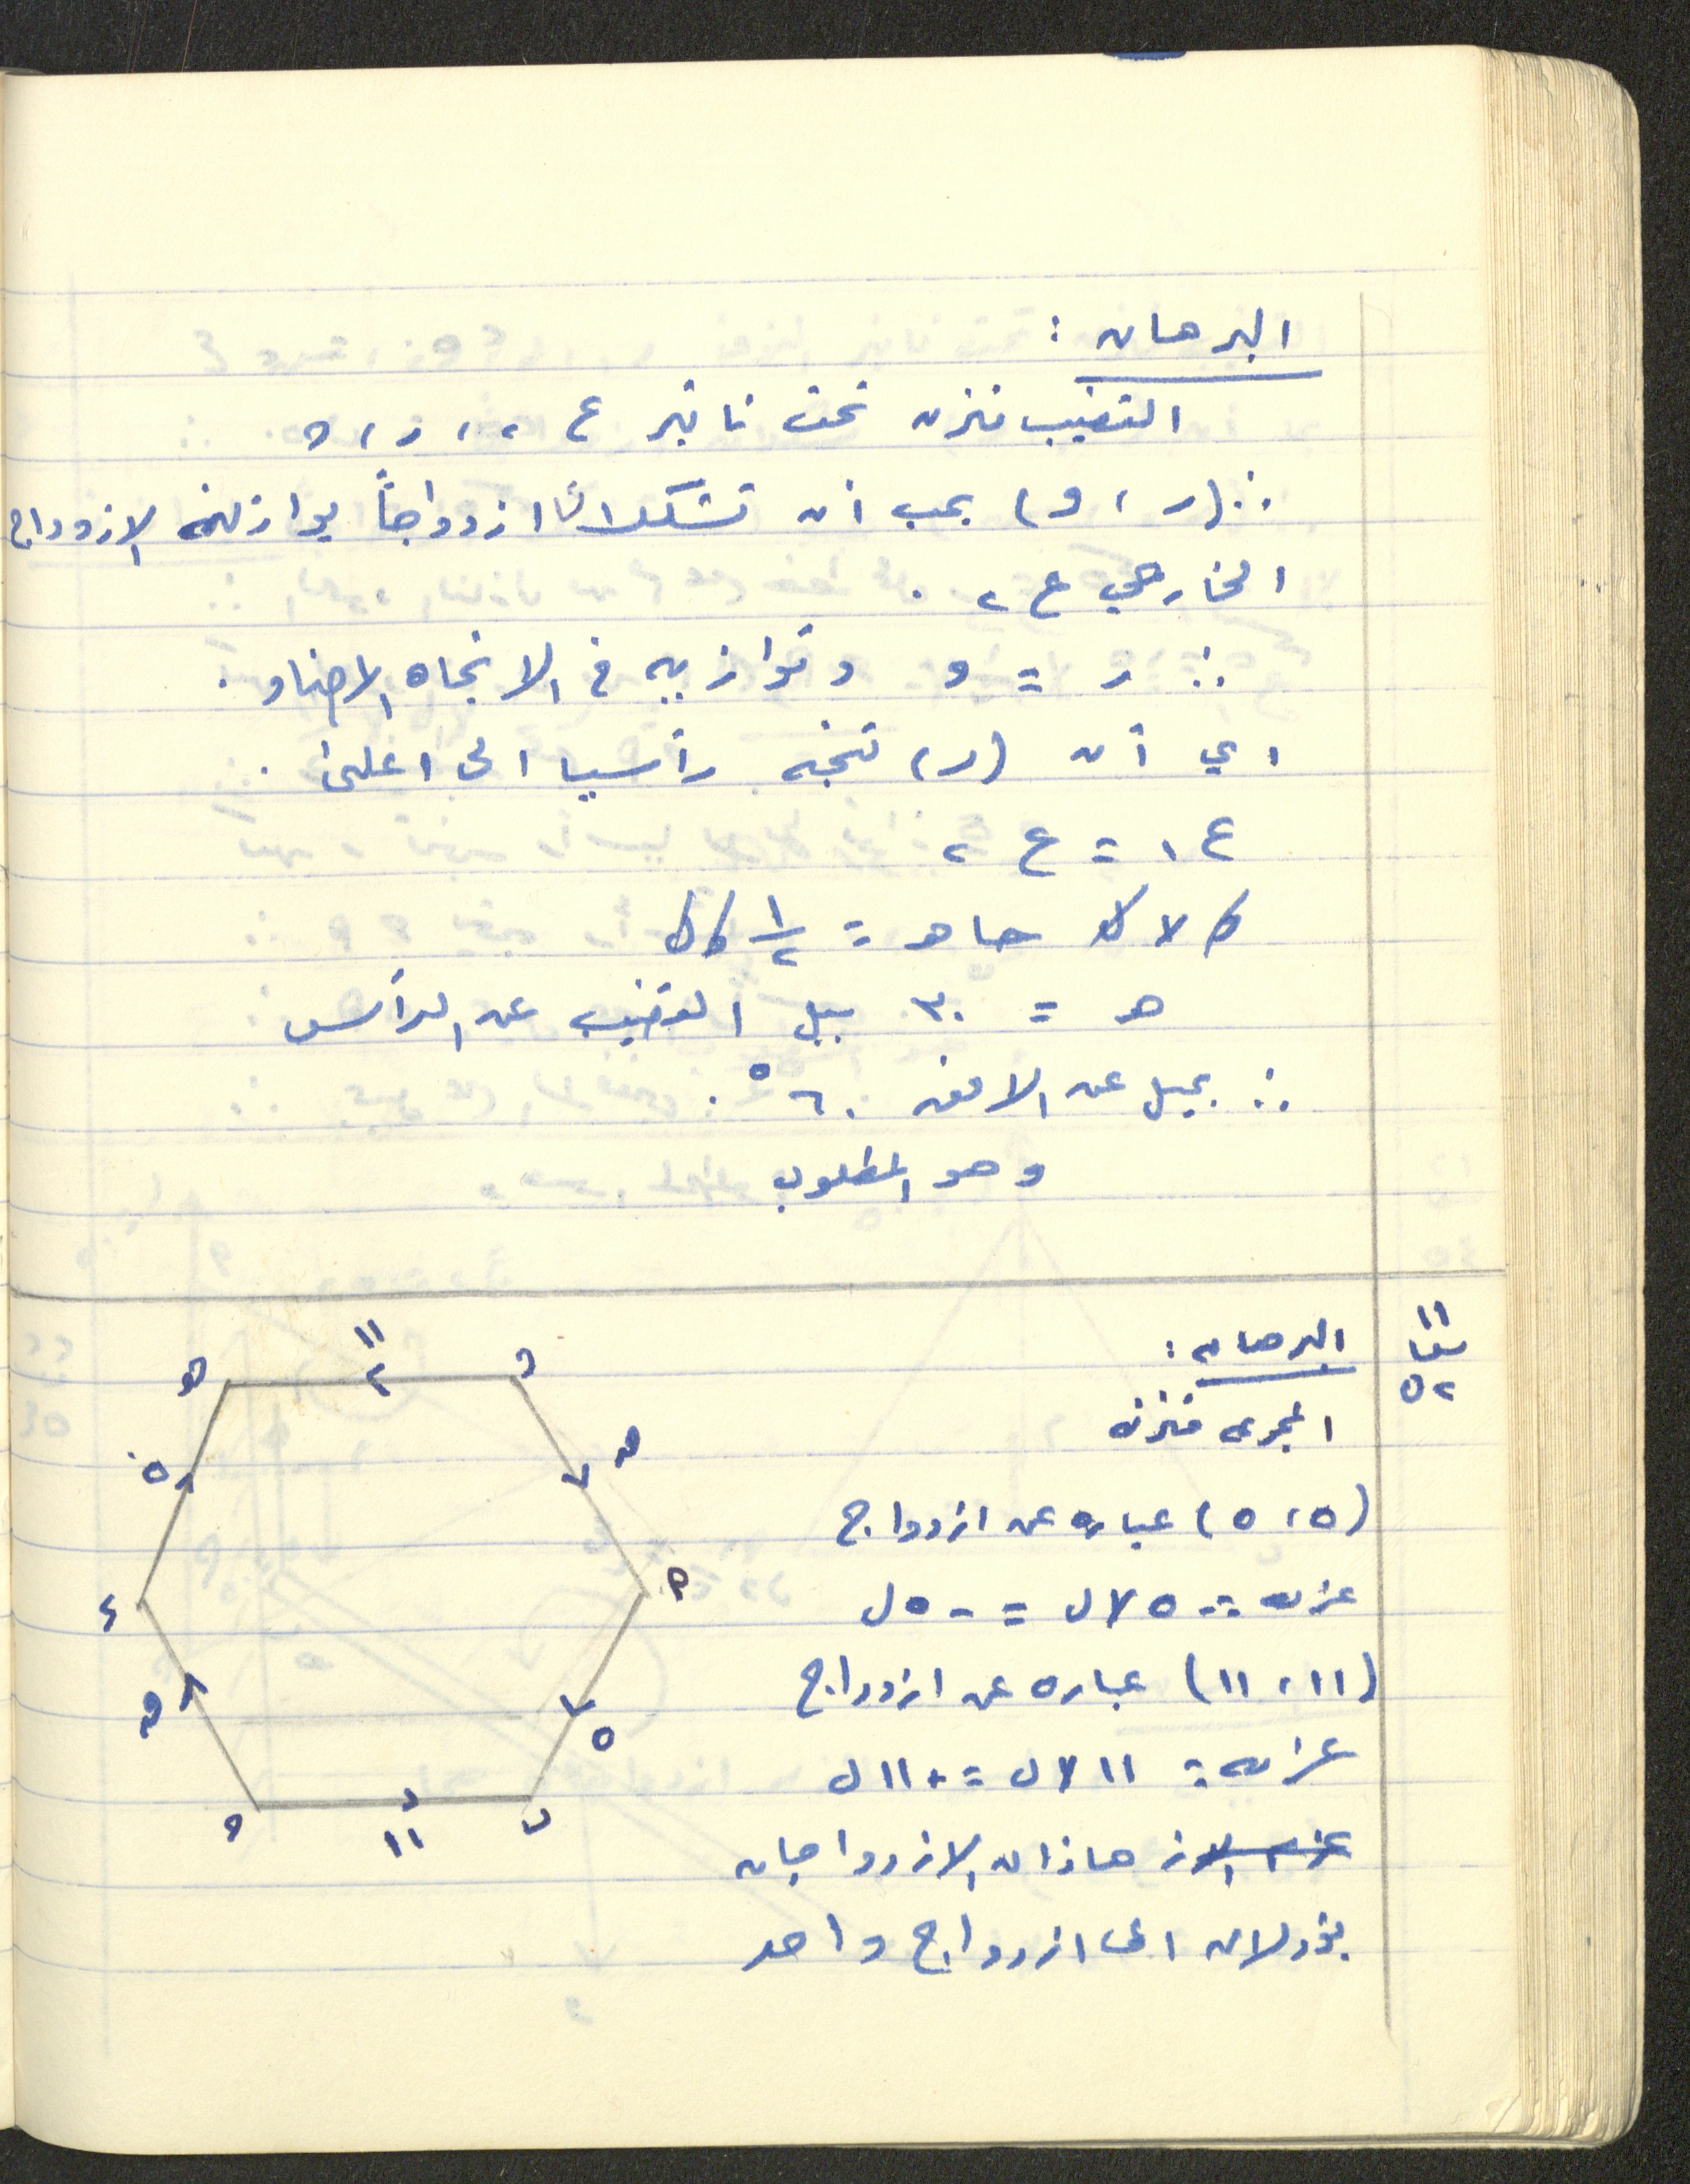 البرهان :
القضيب متزن تحت تأثير ع٢ ، ر ، و
∴ (ر ، و) يجب أن تشكلا ازدواجاً يوازنه الازدواج
الخارجي ع٢ .
∴ ر = و وتوازيه في الاتجاه المضاد .
اي أن (ر) تتجه رأسيا الى اعلى .
ع١ = ع٢
حا هـ = ١/٢
هـ = ٣٠ ميل القضيب عن الرأسي
∴ يميل عن الافقي ٦٠° .
وهو المطلوب
١١
٥٢
البرهان :
المجموعه متزنه
(٥ ، ٥) عباره عن ازدواج
عزمه = - ٥ × ل = - ٥ ل
(١١ ، ١١) عباره عن ازدواج
عزمه = ١١ × ل = + ١١ ل
هاذان الازدواجان
يؤولان الى ازدواج واحد
هـ
١١
و
٥
ء
م
٥
ب
١١